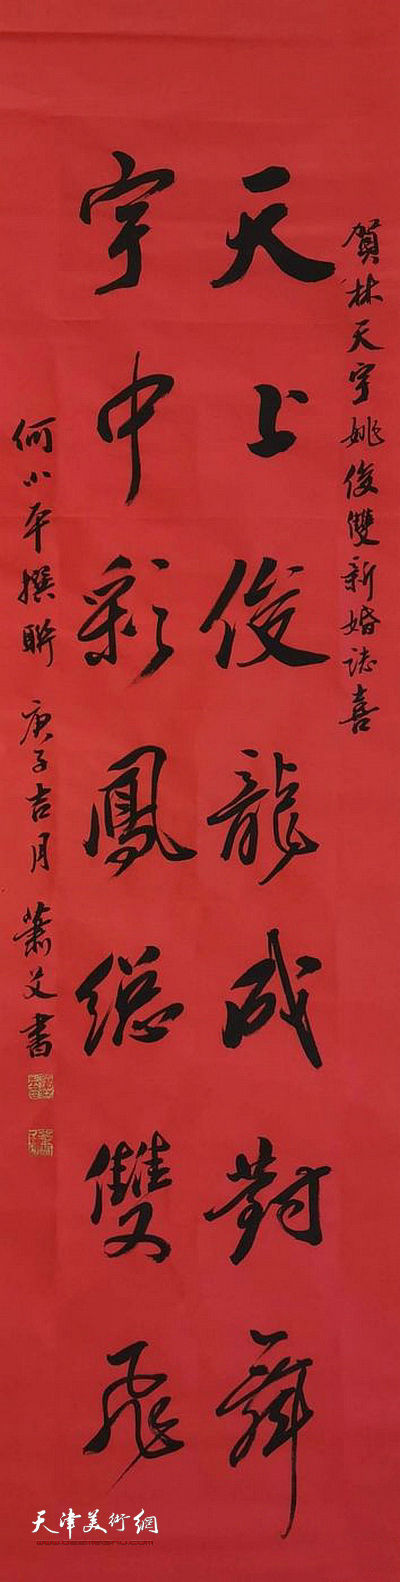 賀林天宇姚俊雙新婚誌喜
天上俊龍成對舞
宇中彩鳳總雙飛
何小平撰聯 庚子吉月 蕭艾書
天津美術網